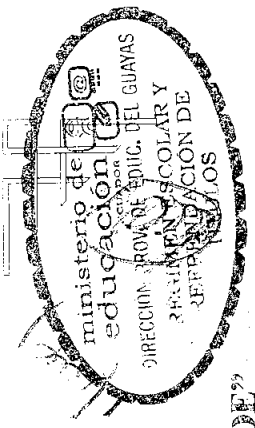 ministerio de
educación
ECUADOR
DIRECCION PROV. DE EDUC. DEL GUAYAS
REGIMEN ESCOLAR Y
REFRENDACION DE
DE"